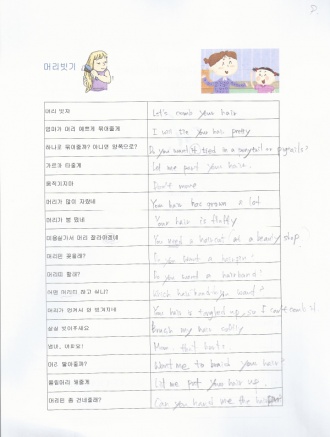 D.
머리빗기
머리 빗자 Let's comb your hair
엄마가 머리 예쁘게 묶어줄게 I will tie you hair pretty
하나로 묶어줄까? 아니면 양쪽으로? Do you want it tied in a ponytail or pigtails?
가르마 타줄게 Let me part your hair.
움직이지마 Don't move
머리가 많이 자랐네 Your hair has grown a lot
머리가 붕 떴네 Your hair is fluffy
미용실가서 머리 잘라야겠네 You need a haircut at a beauty shop
머리핀 꽂을래? Do you want a hairpin?
머리띠 할래? Do you want a hairband?
어떤 머리띠 하고 싶니? Which hairband you want?
머리가 엉켜서 안 빗겨지네 You hair is tangled up, so I can't comb it
살살 빗어주세요 Brush my hair softly
엄마, 아파요! Mom, that hurts
머리 땋아줄까? Want me to braid your hair?
올림머리 해줄게 Let me put your hair up.
머리핀 좀 건네줄래? Can you hand me the hairpin